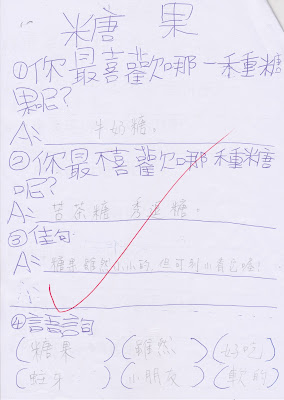 糖果
①你最喜歡哪一種糖
果呢?
A: 牛奶糖。
②你最不喜歡哪種糖
呢?
A: 苦茶糖、秀逗糖。
③佳句
A: 糖果雖然小小的,但可別小看它喔!
④語詞
(糖果)(雖然)(好吃)
(蛀牙)(小朋友)(軟的)